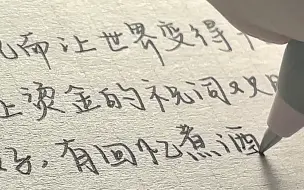 而让世界变得
烫金的祝词又又
，有回忆煮酒